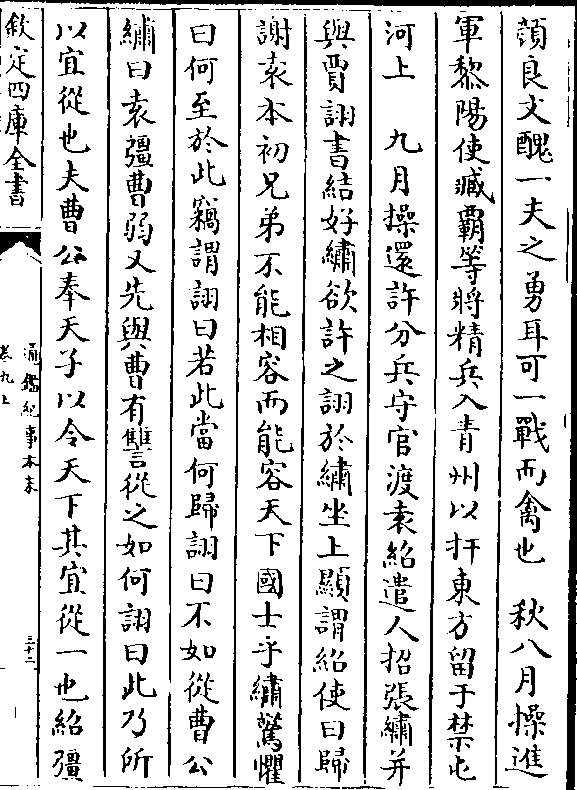 顔良文醜一夫之勇耳可一戰而禽也　秋八月操進
軍黎陽使臧霸等將精兵入青州以扞東方留于禁屯
河上　九月操還許分兵守官渡袁紹遣人招張繡并
與賈詡書結好繡欲許之詡於繡坐上顯謂紹使曰歸
謝袁本初兄弟不能相容而能容天下國士乎繡驚懼
曰何至於此竊謂詡曰若此當何歸詡曰不如從曹公
繡曰袁彊曹弱又先與曹有讐從之如何詡曰此乃所
以宜從也夫曹公奉天子以令天下其宜從一也紹彊
欽定四庫全書
通鑑紀事本末
卷九上
三十二